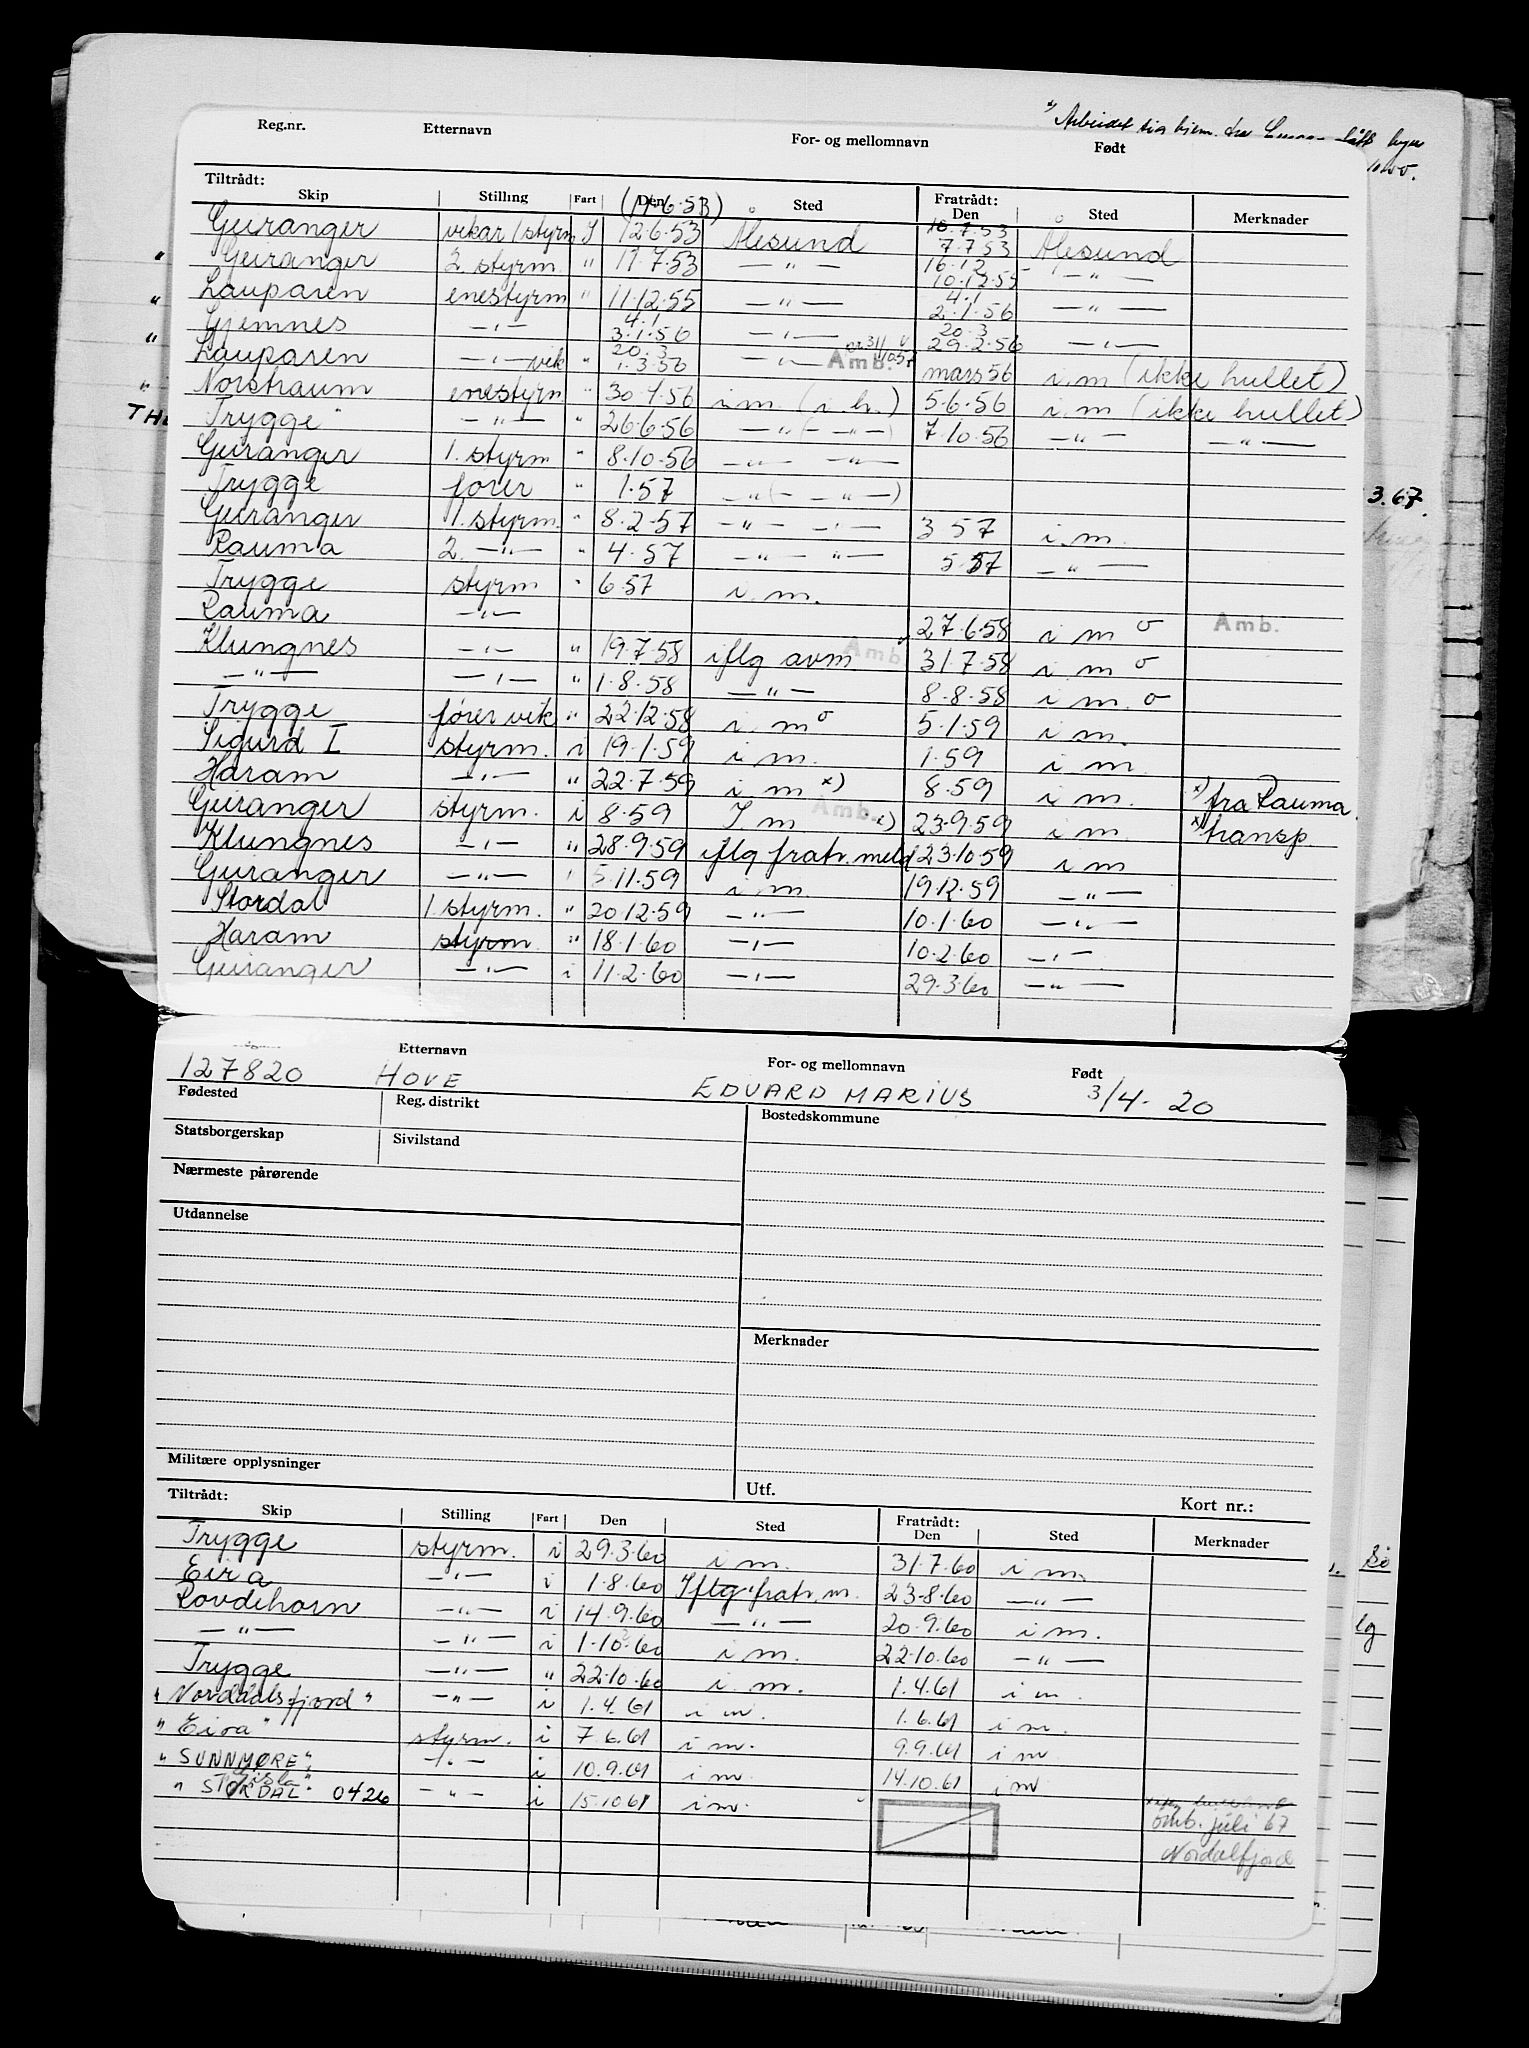 Reg.nr. Etternavn For- og mellomnavn Født
x) Arbeidet sig hjem
Tiltrådt: Fratrådt:
Skip Stilling Fart Den Sted Den Sted Merknader
(11.6.53) 10.7.53
Geiranger vikar 1 styrm I 12.6.53 Ålesund 7.7.53 Ålesund
16.12
" Geiranger 2. styrm. " 11.7.53 —"— 10.12.55 —"—
4.1
Lauparen enestyrm " 11.12.55 —"— 2.1.56 —"—
4.1 20.3
" Gjemnes —"— 3.1.56 —"— 29.2.56 —"—
20.3
" Lauparen —"— vik " 1.3.56 —"— Amb. mars 56 i.m (ikke hullet)
" Norstraum enestyrm " 30.4.56 i.m. (i.h.) 5.6.56 i.m (ikke hullet)
Trygge —"— " 26.6.56 —"— (—"—) 7.10.56 —"— —"—
Geiranger 1. styrm " 8.10.56 —"— —"—
Trygge fører " 1.57 —"— (—"—)
Geiranger 1. styrm. " 8.2.57 —"— —"— 3.57 i.m.
3.67.
Rauma 2. —"— " 4.57 —"— —"— 5.57 —"—
Trygge styrm " 6.57 i.m.
Rauma —"— 27.6.58 i m o Amb.
Klungnes —"— " 19.7.58 iflg avm Amb 31.7.58 i m o
—"— —"— " 1.8.58 —"— 8.8.58 i m. o
Trygge fører vik " 22.12.58 i. m o 5.1.59 i m.
Sigurd I styrm. i 19.1.59 i m. 1.59 i m.
Haram —"— " 22.7.59 i m x) 8.59 i m. x) fra Rauma.
Geiranger styrm. i 8.59 I m Amb. x) 23.9.59 i m. x) transp
Klungnes —"— " 28.9.59 iflg fratr. meld 23.10.59 i m
Geiranger —"— " 5.11.59 i m. 19.12.59 —"—
Stordal 1 styrm. " 20.12.59 —"— 10.1.60 —"—
Haram styrm " 18.1.60 —"— 10.2.60 —"—
Geiranger —"— i 11.2.60 —"— 29.3.60 —"—
Etternavn For- og mellomnavn Født
127820 HOVE EDVARD MARIUS 3/4-20
Fødested Reg. distrikt Bostedskommune
Statsborgerskap Sivilstand
Nærmeste pårørende
Utdannelse
Merknader
Militære opplysninger Utf. Kort nr.:
Tiltrådt: Fratrådt:
Skip Stilling Fart Den Sted Den Sted Merknader
Trygge styrm. i 29.3.60 i m. 31.7.60 i m.
Eira —"— i 1.8.60 Iflg fratr. m. 23.8.60 —"—
Rovdehorn —"— i 14.9.60 —"— 20.9.60 i m.
—"— —"— i 1.10.60 i m. 22.10.60 —"—
Trygge —"— " 22.10.60 i. m. 1.4.61 i m.
" Norddalsfjord " —"— i 1.4.61 i m. 1.6.61 i m.
" Eira " styrm. i 7.6.61 i m. 9.9.61 i m
" SUNNMØRE " —"— i 10.9.61 i m 14.10.61 i m
" STORDAL " 0426 —"— i 15.10.61 i m.
omb. juli 67
Nordalfjord